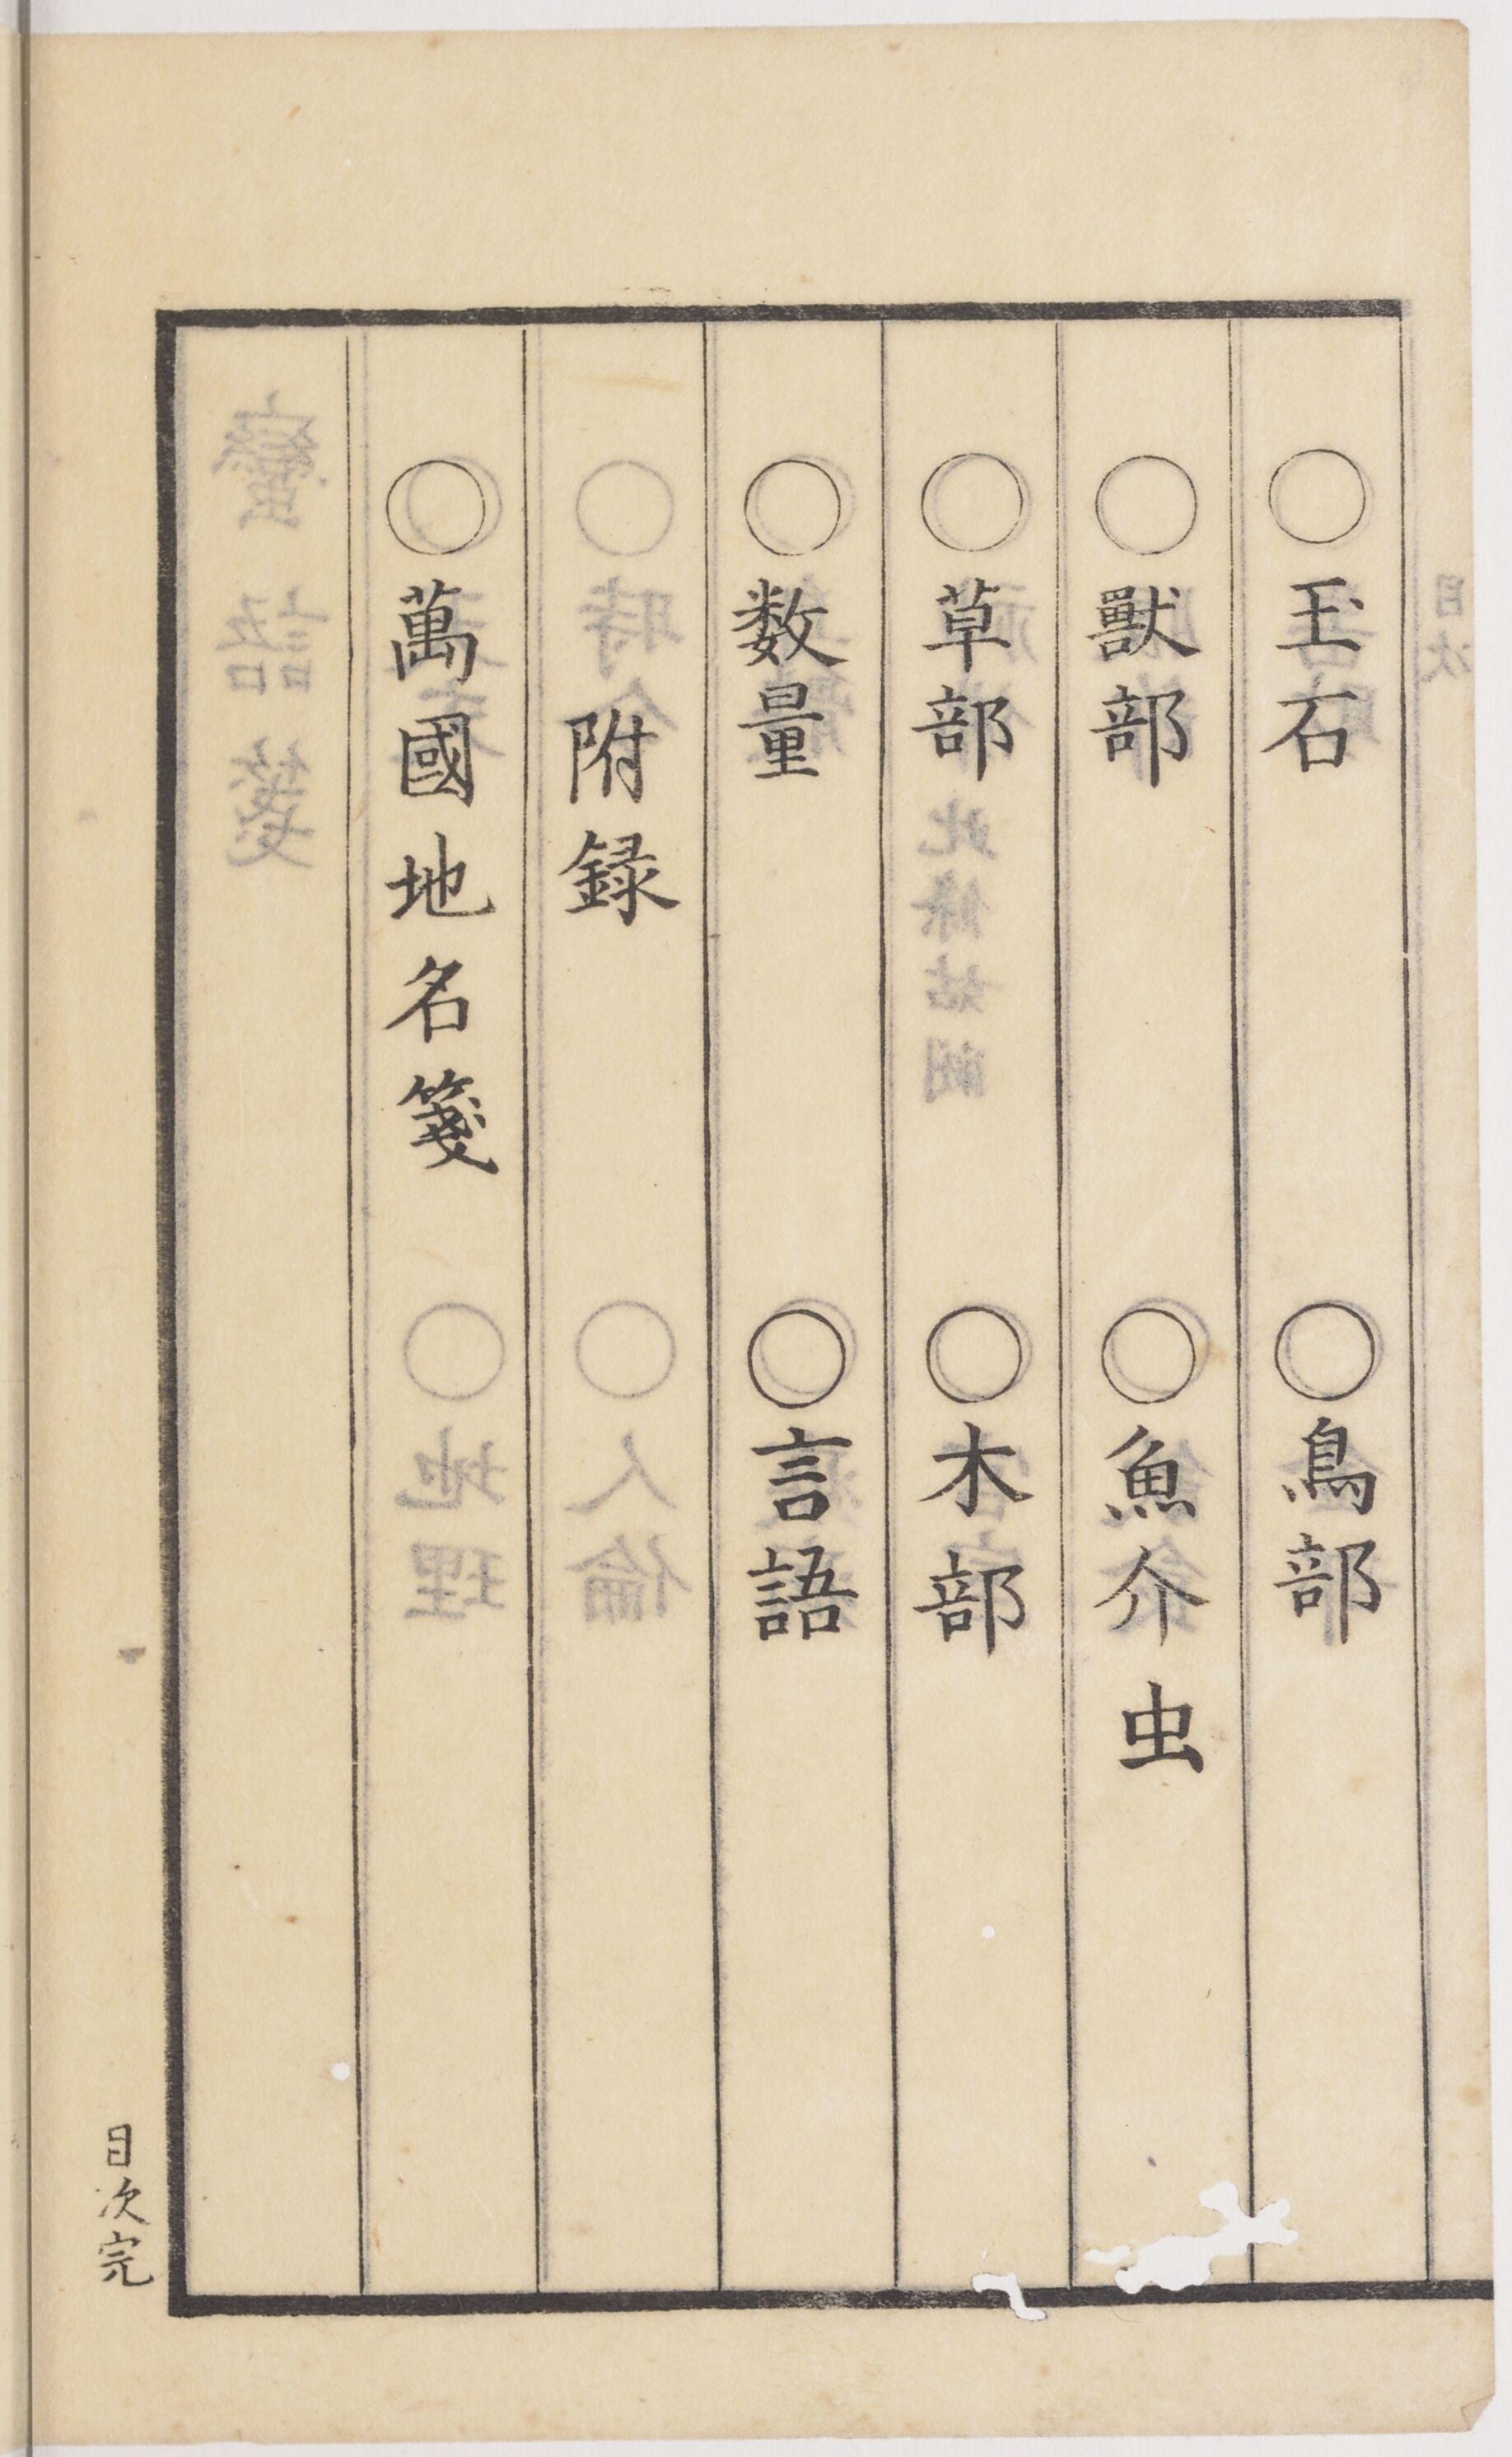 ○玉石　○鳥部
○獸部　○魚介虫
○草部　○木部
○数量　○言語
附録
○萬國地名箋
目次完